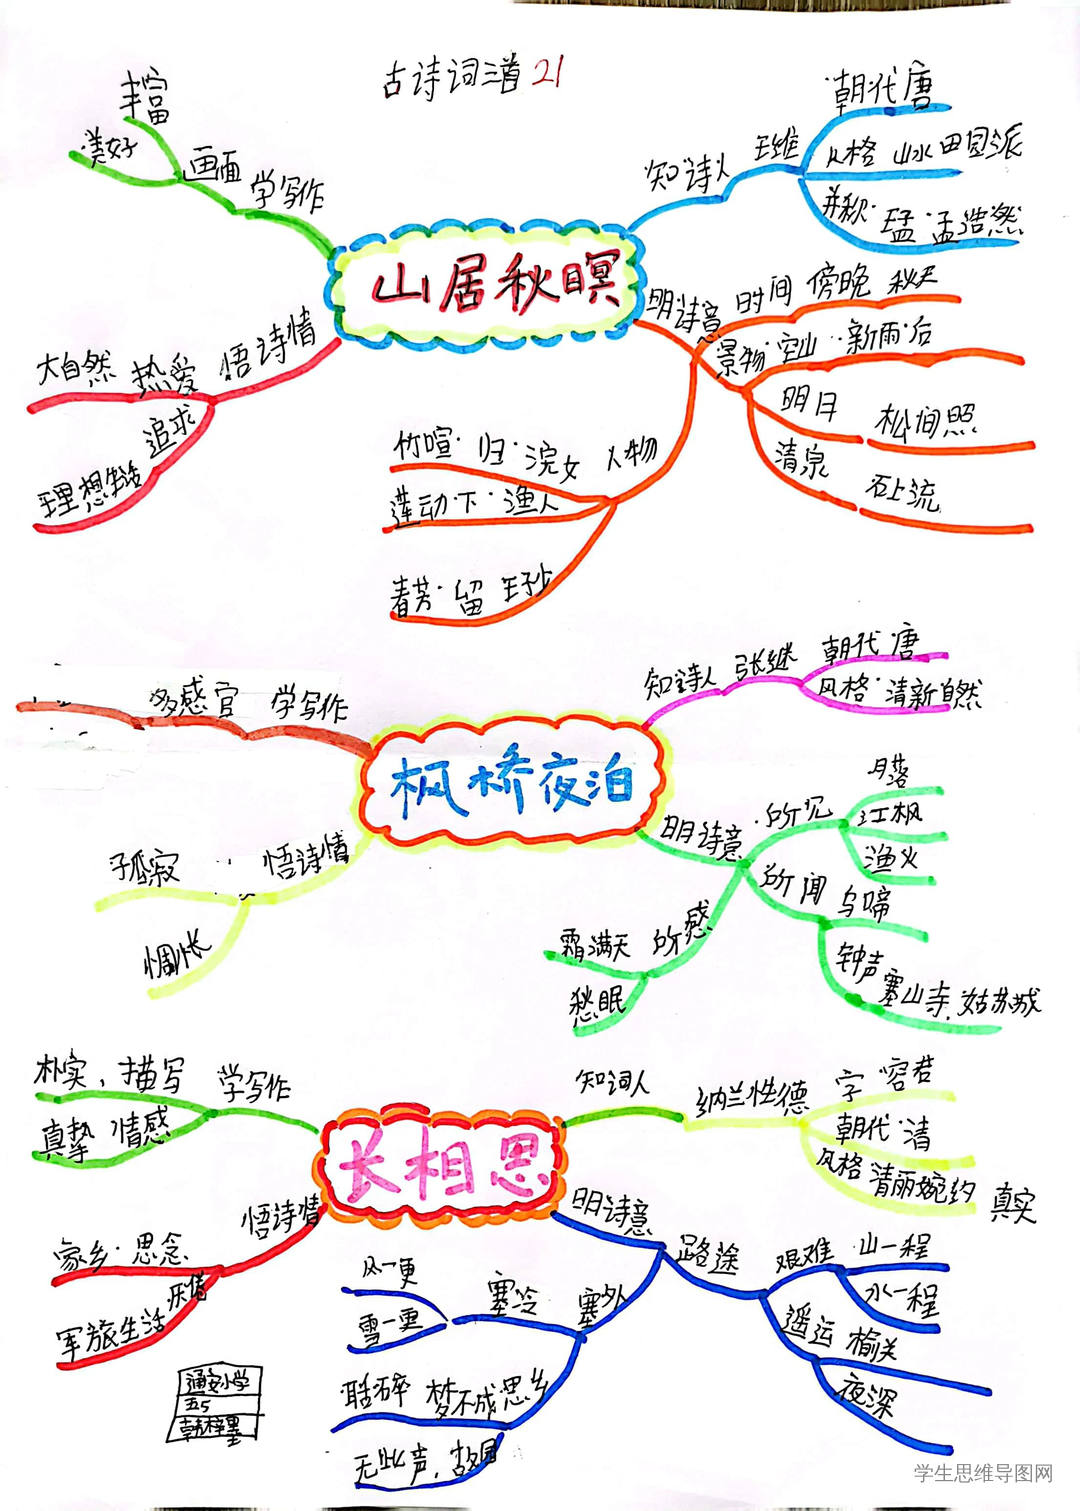 古诗词三首 21
山居秋暝
知诗人 王维
朝代 唐
风格 山水田园派
并称·王孟·孟浩然
明诗意
时间 傍晚 秋天
景物·空山·新雨·后
明月 松间照
清泉 石上流
人物
竹喧·归·浣女
莲动·下·渔人
春芳·留
学写作
画面
丰富
美好
悟诗情
热爱 大自然
追求
理想生活
枫桥夜泊
知诗人 张继
朝代 唐
风格·清新自然
明诗意
·所见
月落
江枫
渔火
所闻 乌啼
钟声
寒山寺.姑苏城
所感
霜满天
愁眠
学写作
多感官
悟诗情
孤寂
惆怅
长相思
知词人
纳兰性德
字 容若
朝代·清
风格 清丽婉约 真实
明诗意
路途
艰难 山一程
水一程
遥远 榆关
夜深
塞外
寒冷
风一更
雪一更
聒碎 梦不成 思乡
无此声，故园
学写作
朴实，描写
真挚 情感
悟诗情
家乡·思念
军旅生活
通安小学
五5
学生思维导图网